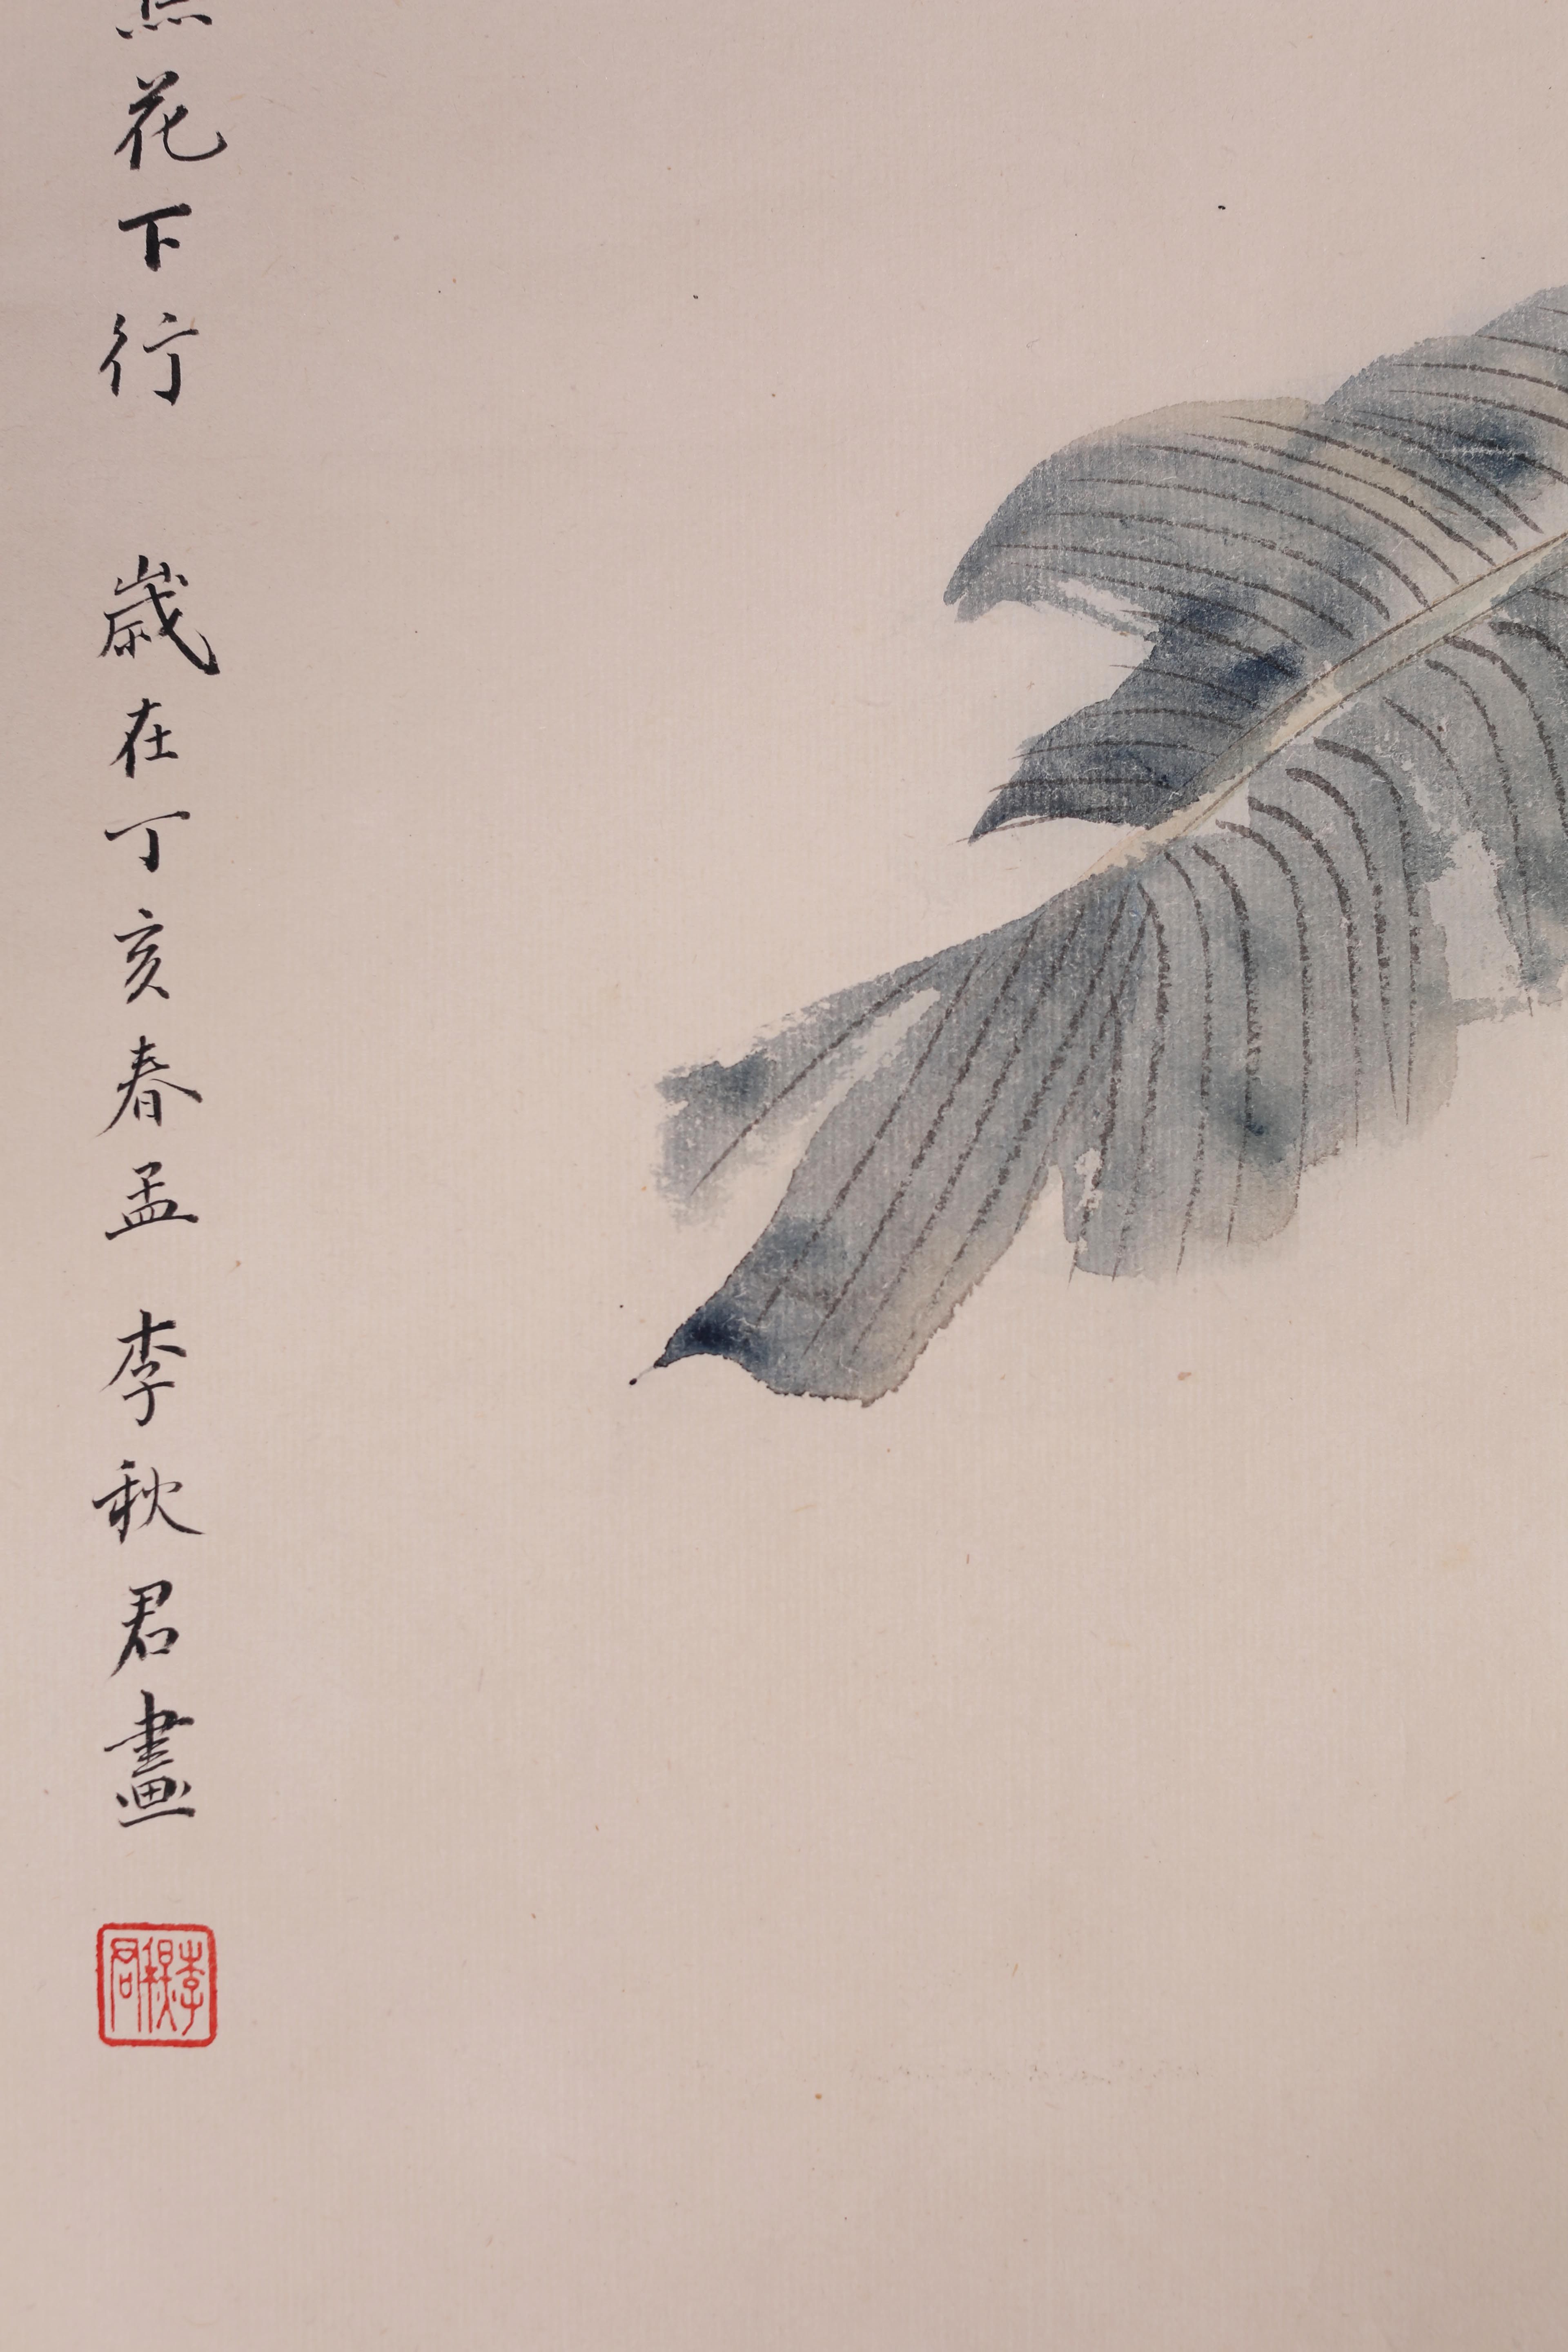 花下行 歲在丁亥春孟 李秋君畫
李秋君